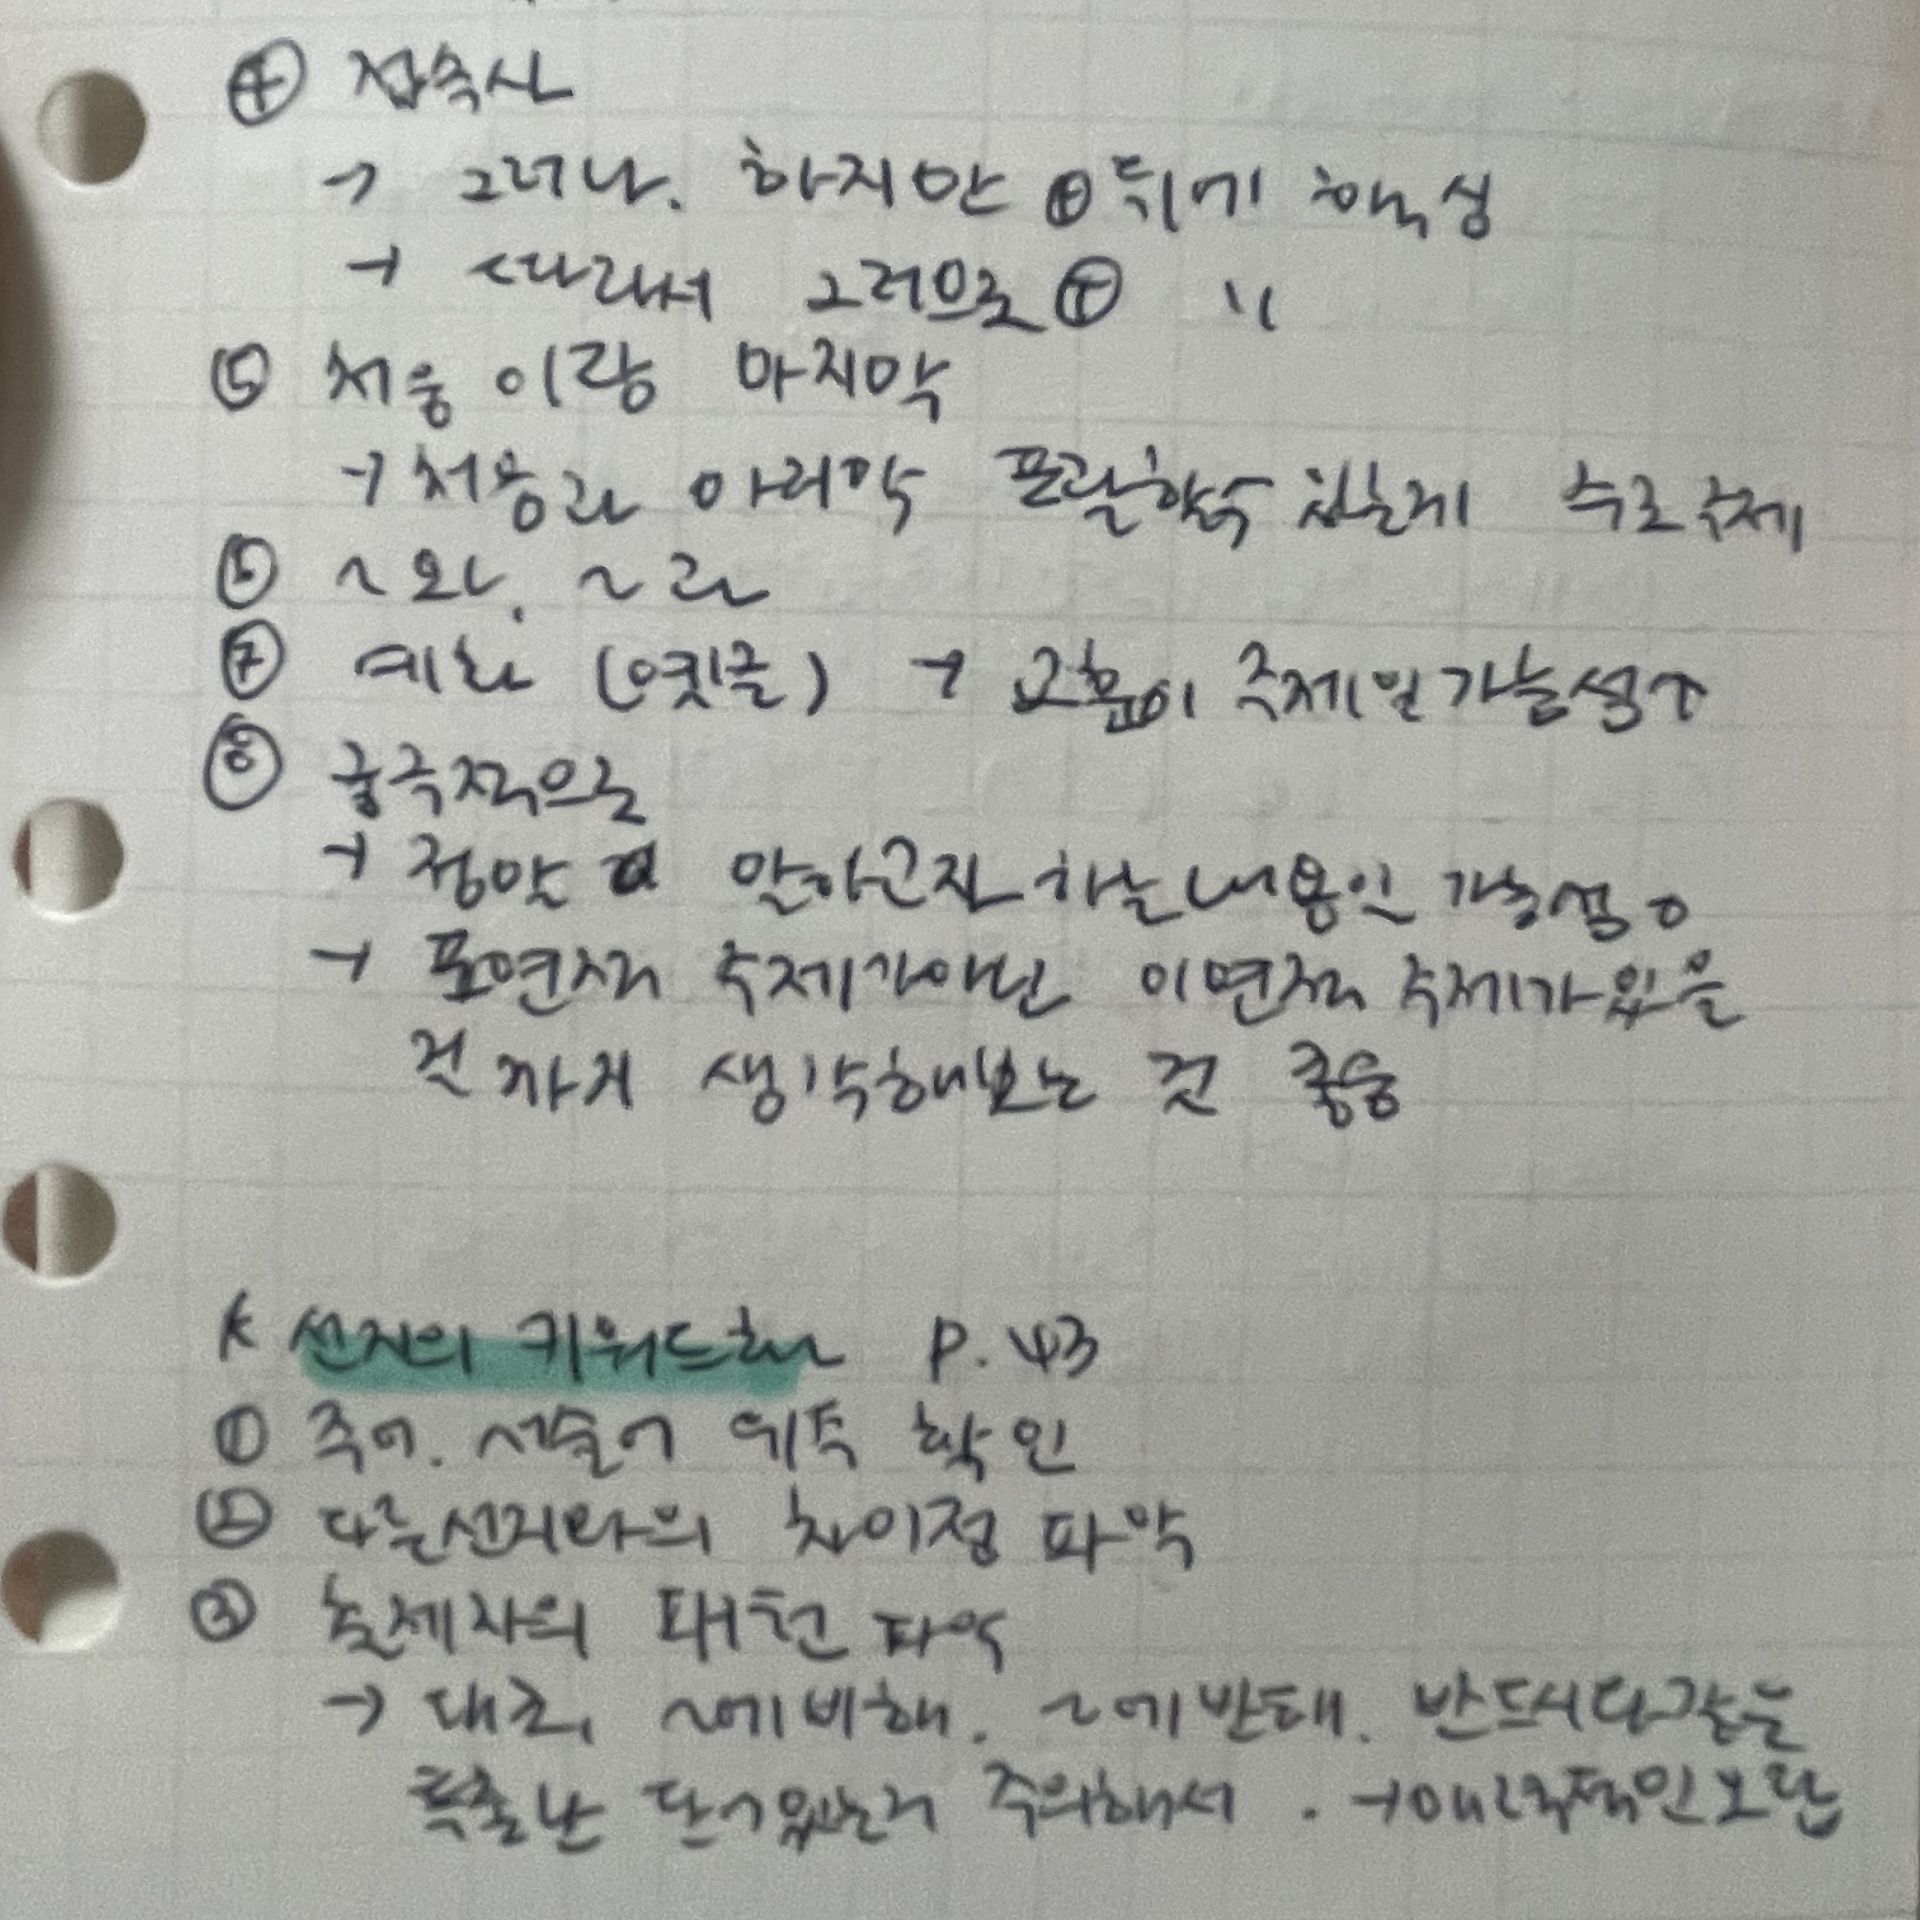 ④ 접속사
→ 그러나, 하지만 ⊕ 뒤에 핵심
→ 따라서 그러므로 ⊕ 〃
⑤ 처음이랑 마지막
→ 처음과 마지막 포괄할수있는게 주로 주제
⑥ ~와, ~과
⑦ 예화 (옛글) → 교훈이 주제일 가능성↑
⑧ 궁극적으로
→ 정말 말하고자 하는 내용인 가능성
→ 표면적 주제가 아닌 이면적 주제가 있을
건까지 생각해보는 것 좋음
* 선지의 키워드화 P.43
① 주어, 서술어 위주 확인
② 다른선지와의 차이점 파악
③ 출제자의 패턴 파악
→ 대조, ~에 비해, ~에 반해, 반드시다 같은
특출난 단어있는거 주의해서 . → 매력적인오답